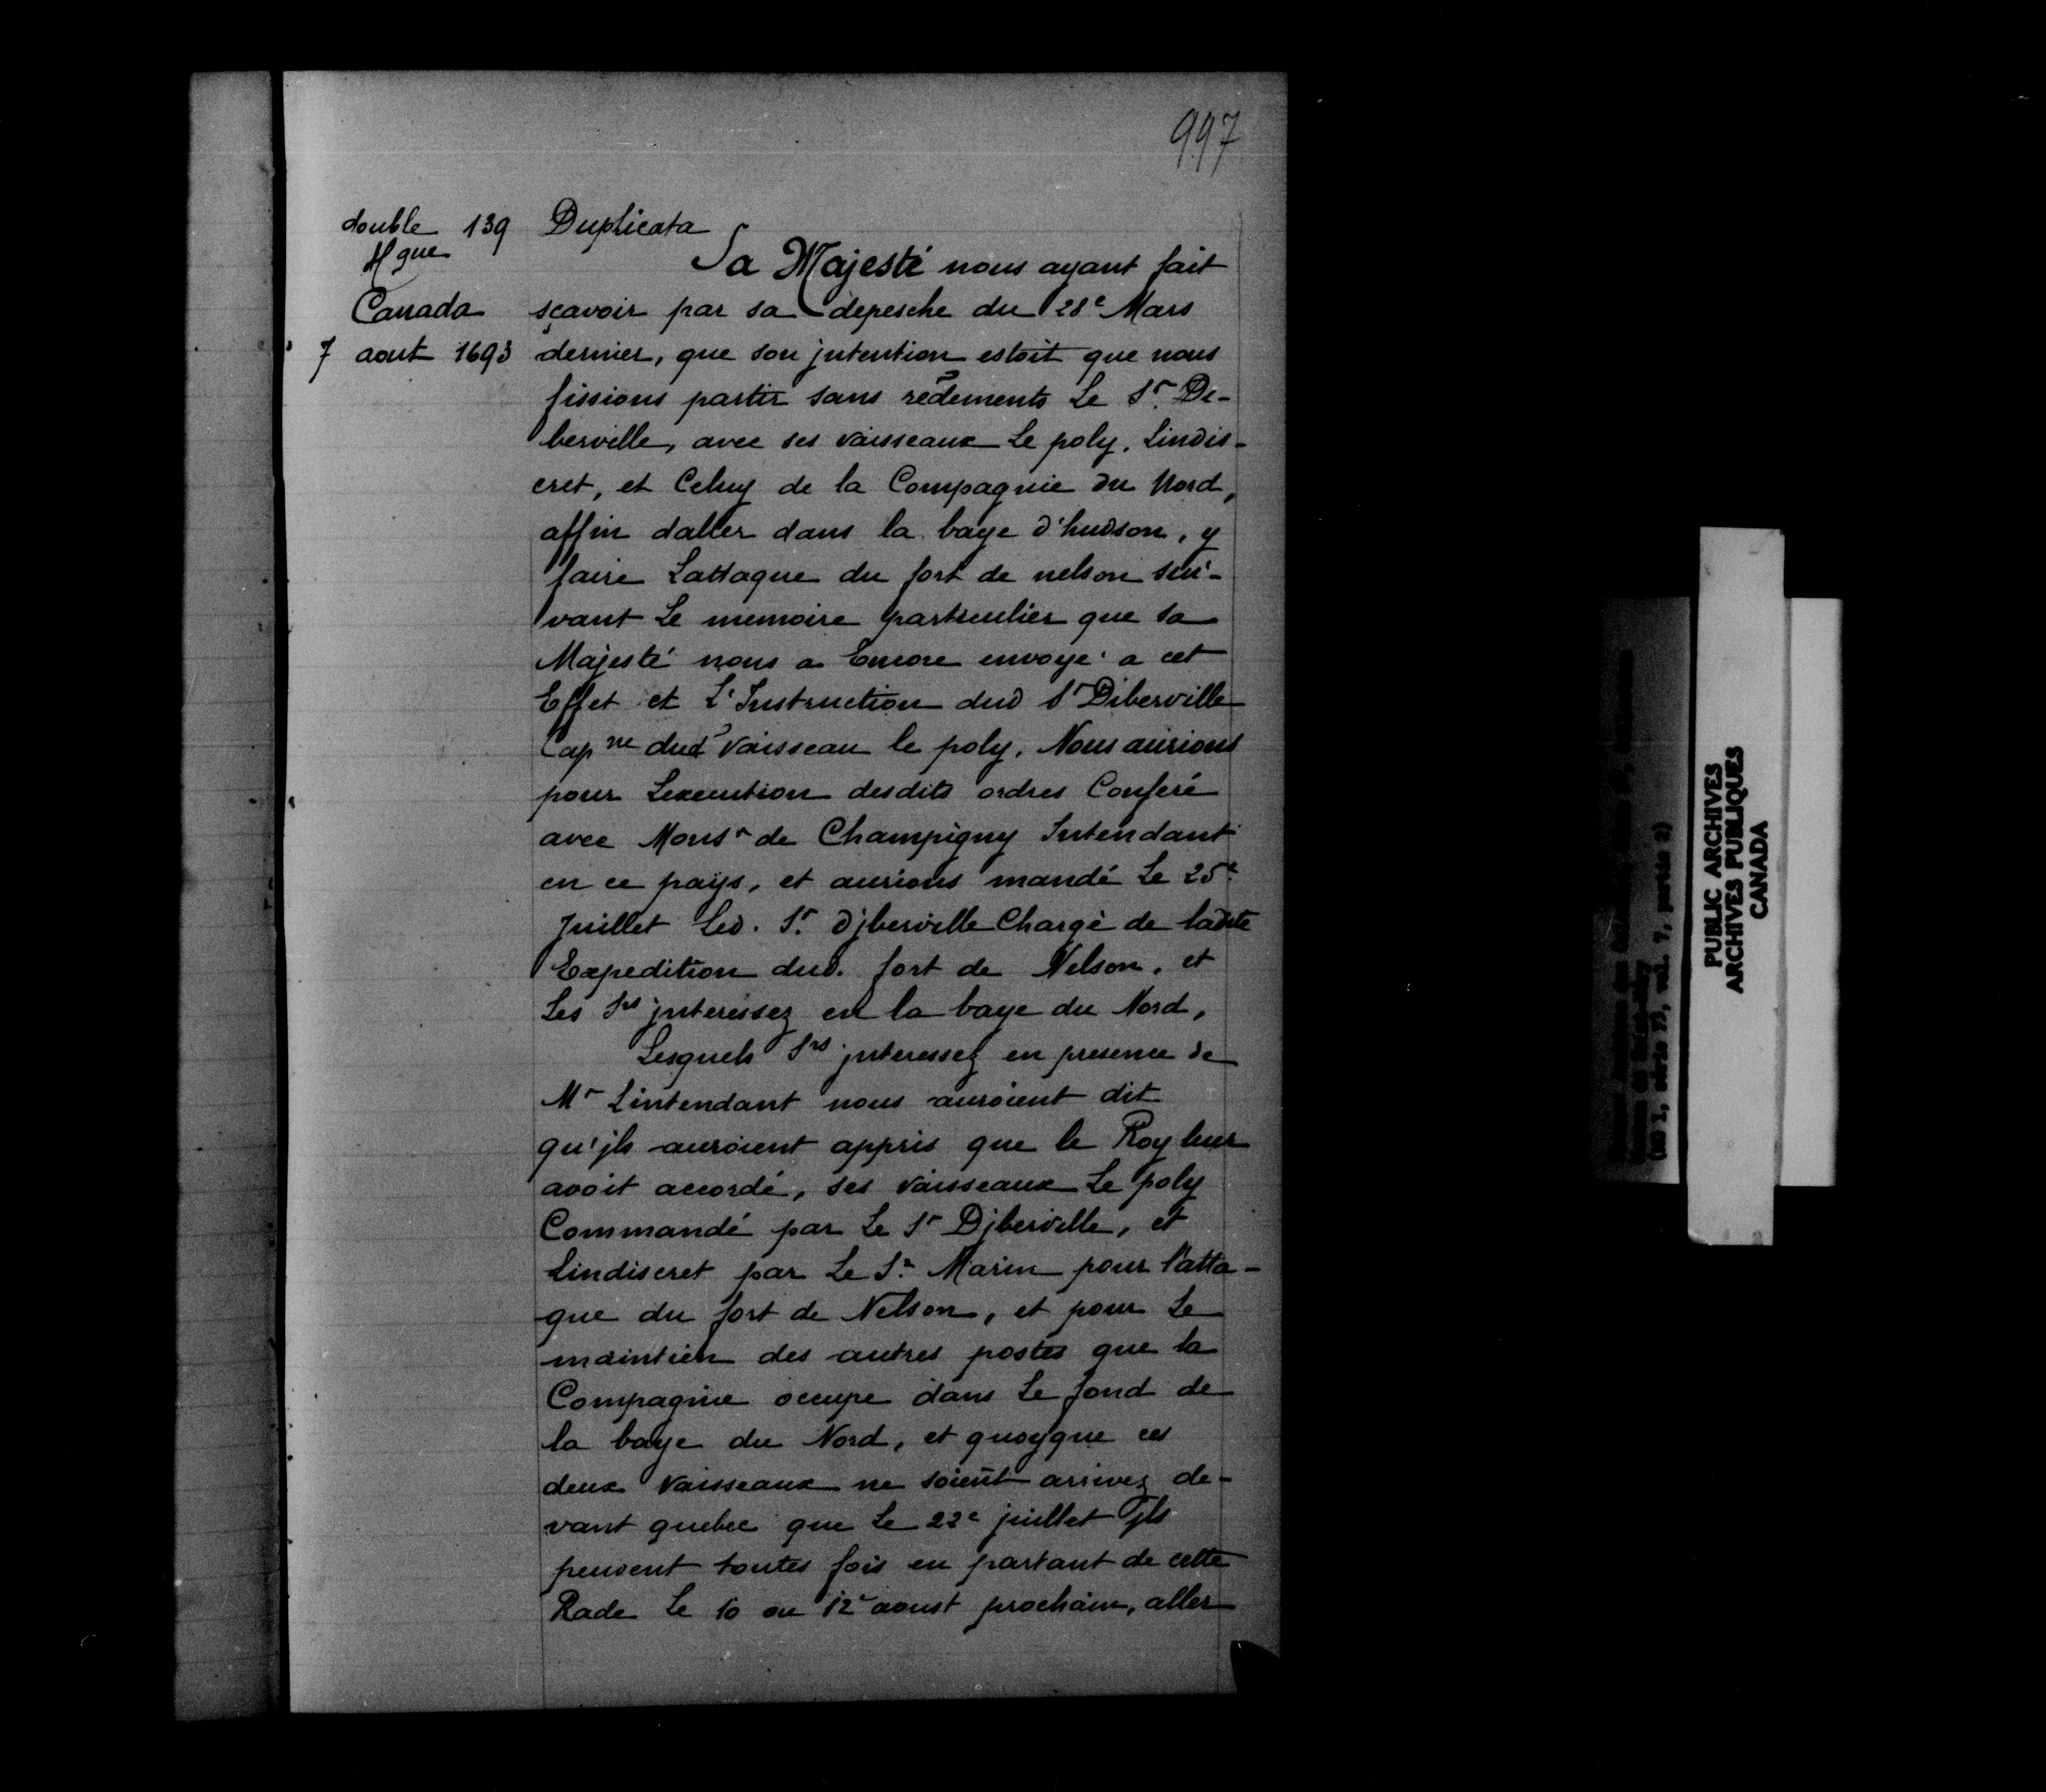 997
double 139 Duplicata
Mgne
Sa Majesté nous ayant fait
Canada
sçavoir par sa depesche du 28e Mars
7 aout 1693
dernier, que son jntention estoit que nous
fissions partir sans redements Le Sr. Di-
berville, avec ses vaisseaux Le poly, Lindis-
cret, et Celuy de la Compagnie du Nord,
affin daller dans la baye d'hudson, y
faire Lattaque du fort de nelson sui-
vant Le memoire particulier que sa
Majesté nous a Encore envoyé a cet
Effet et L'Instruction dud Sr Diberville
Capne dud vaisseau le poly, Nous aurions
pour Lexecution desdits ordres Conferé
avec Monsr de Champigny Intendant
en ce pays, et aurions mandé Le 25e
Juillet Led. Sr. Djberville Chargé de ladite
Expedition dud. fort de Nelson, et
Les Srs jnteressez en la baye du Nord,
Lesquels Srs jnteressez en presence de
Mr Lintendant nous auroient dit
qu'jls auroient appris que le Roy leur
avoit accordé, ses vaisseaux Le poly
Commandé par Le Sr Djberville, et
Lindiscret par Le Sr. Marin pour l'atta-
que du fort de Nelson, et pour Le
maintien des autres postes que la
Compagnie occupe dans Le fond de
la baye du Nord, et quoyque ces
deux vaisseaux ne soient arrivez de-
vant quebec que Le 22e juillet jls
peuvent toutes fois en partant de cette
Rade Le 10 ou 12e aoust prochain, aller
PUBLIC ARCHIVES
ARCHIVES PUBLIQUES
CANADA
(MG 1, série F3, vol. 7, partie 2)